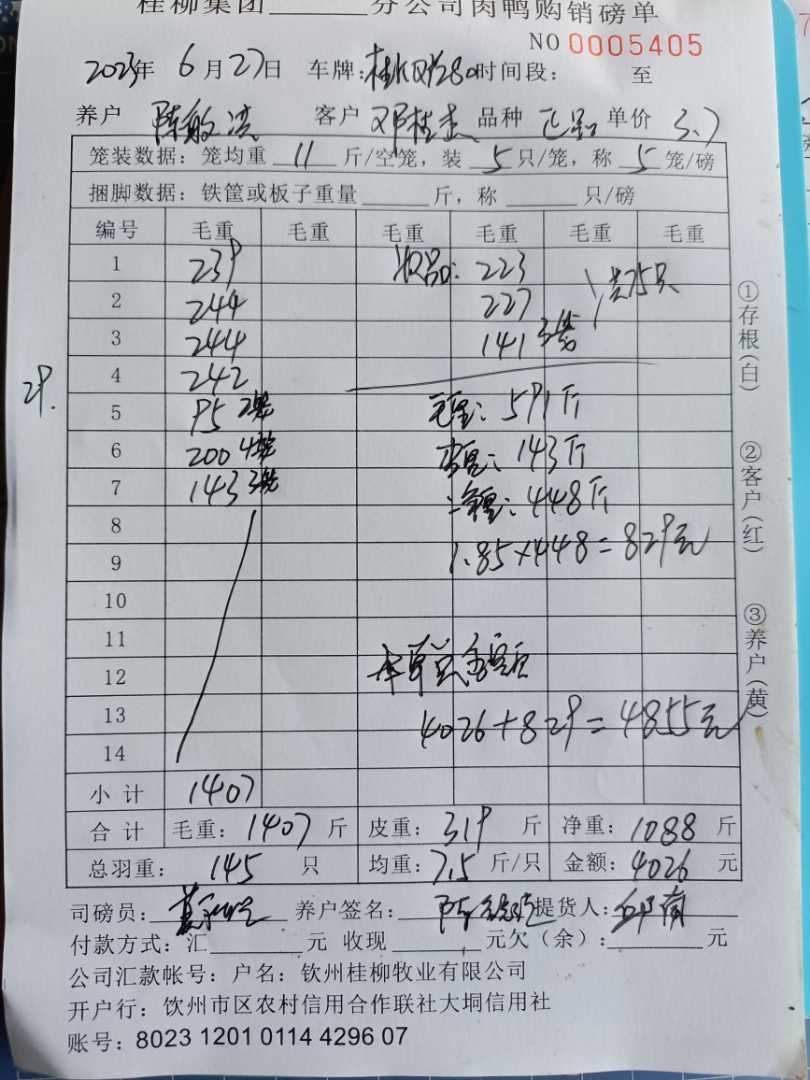 桂柳集团______分公司肉鸭购销磅单
NO 0005405
2023年 6月27日 车牌: 时间段: 至
养户 陈敏洪 客户 邓桂 品种 正品 单价 3.7
笼装数据: 笼均重 11 斤/空笼, 装 5 只/笼, 称 5 笼/磅
捆脚数据: 铁筐或板子重量______斤, 称______只/磅
编号 毛重 毛重 毛重 毛重 毛重 毛重
1 239 次品: 223 共75只
2 244 227
3 244 141 3笼
4 242
29.
5 95 2笼 毛重: 591斤
6 200 4笼 皮重: 143斤
7 143 3笼 净重: 448斤
8
9 1.85×448=829元
10
11
12 本单总金额
13 4026+829=4855元
14
小计 1407
合计 毛重: 1407 斤 皮重: 319 斤 净重: 1088 斤
总羽重: 145 只 均重: 7.5 斤/只 金额: 4026 元
司磅员: 养户签名: 提货人:
付款方式: 汇______元 收现______元欠(余):______元
公司汇款帐号: 户名: 钦州桂柳牧业有限公司
开户行: 钦州市区农村信用合作联社大垌信用社
账号: 8023 1201 0114 4296 07
①存根(白) ②客户(红) ③养户(黄)